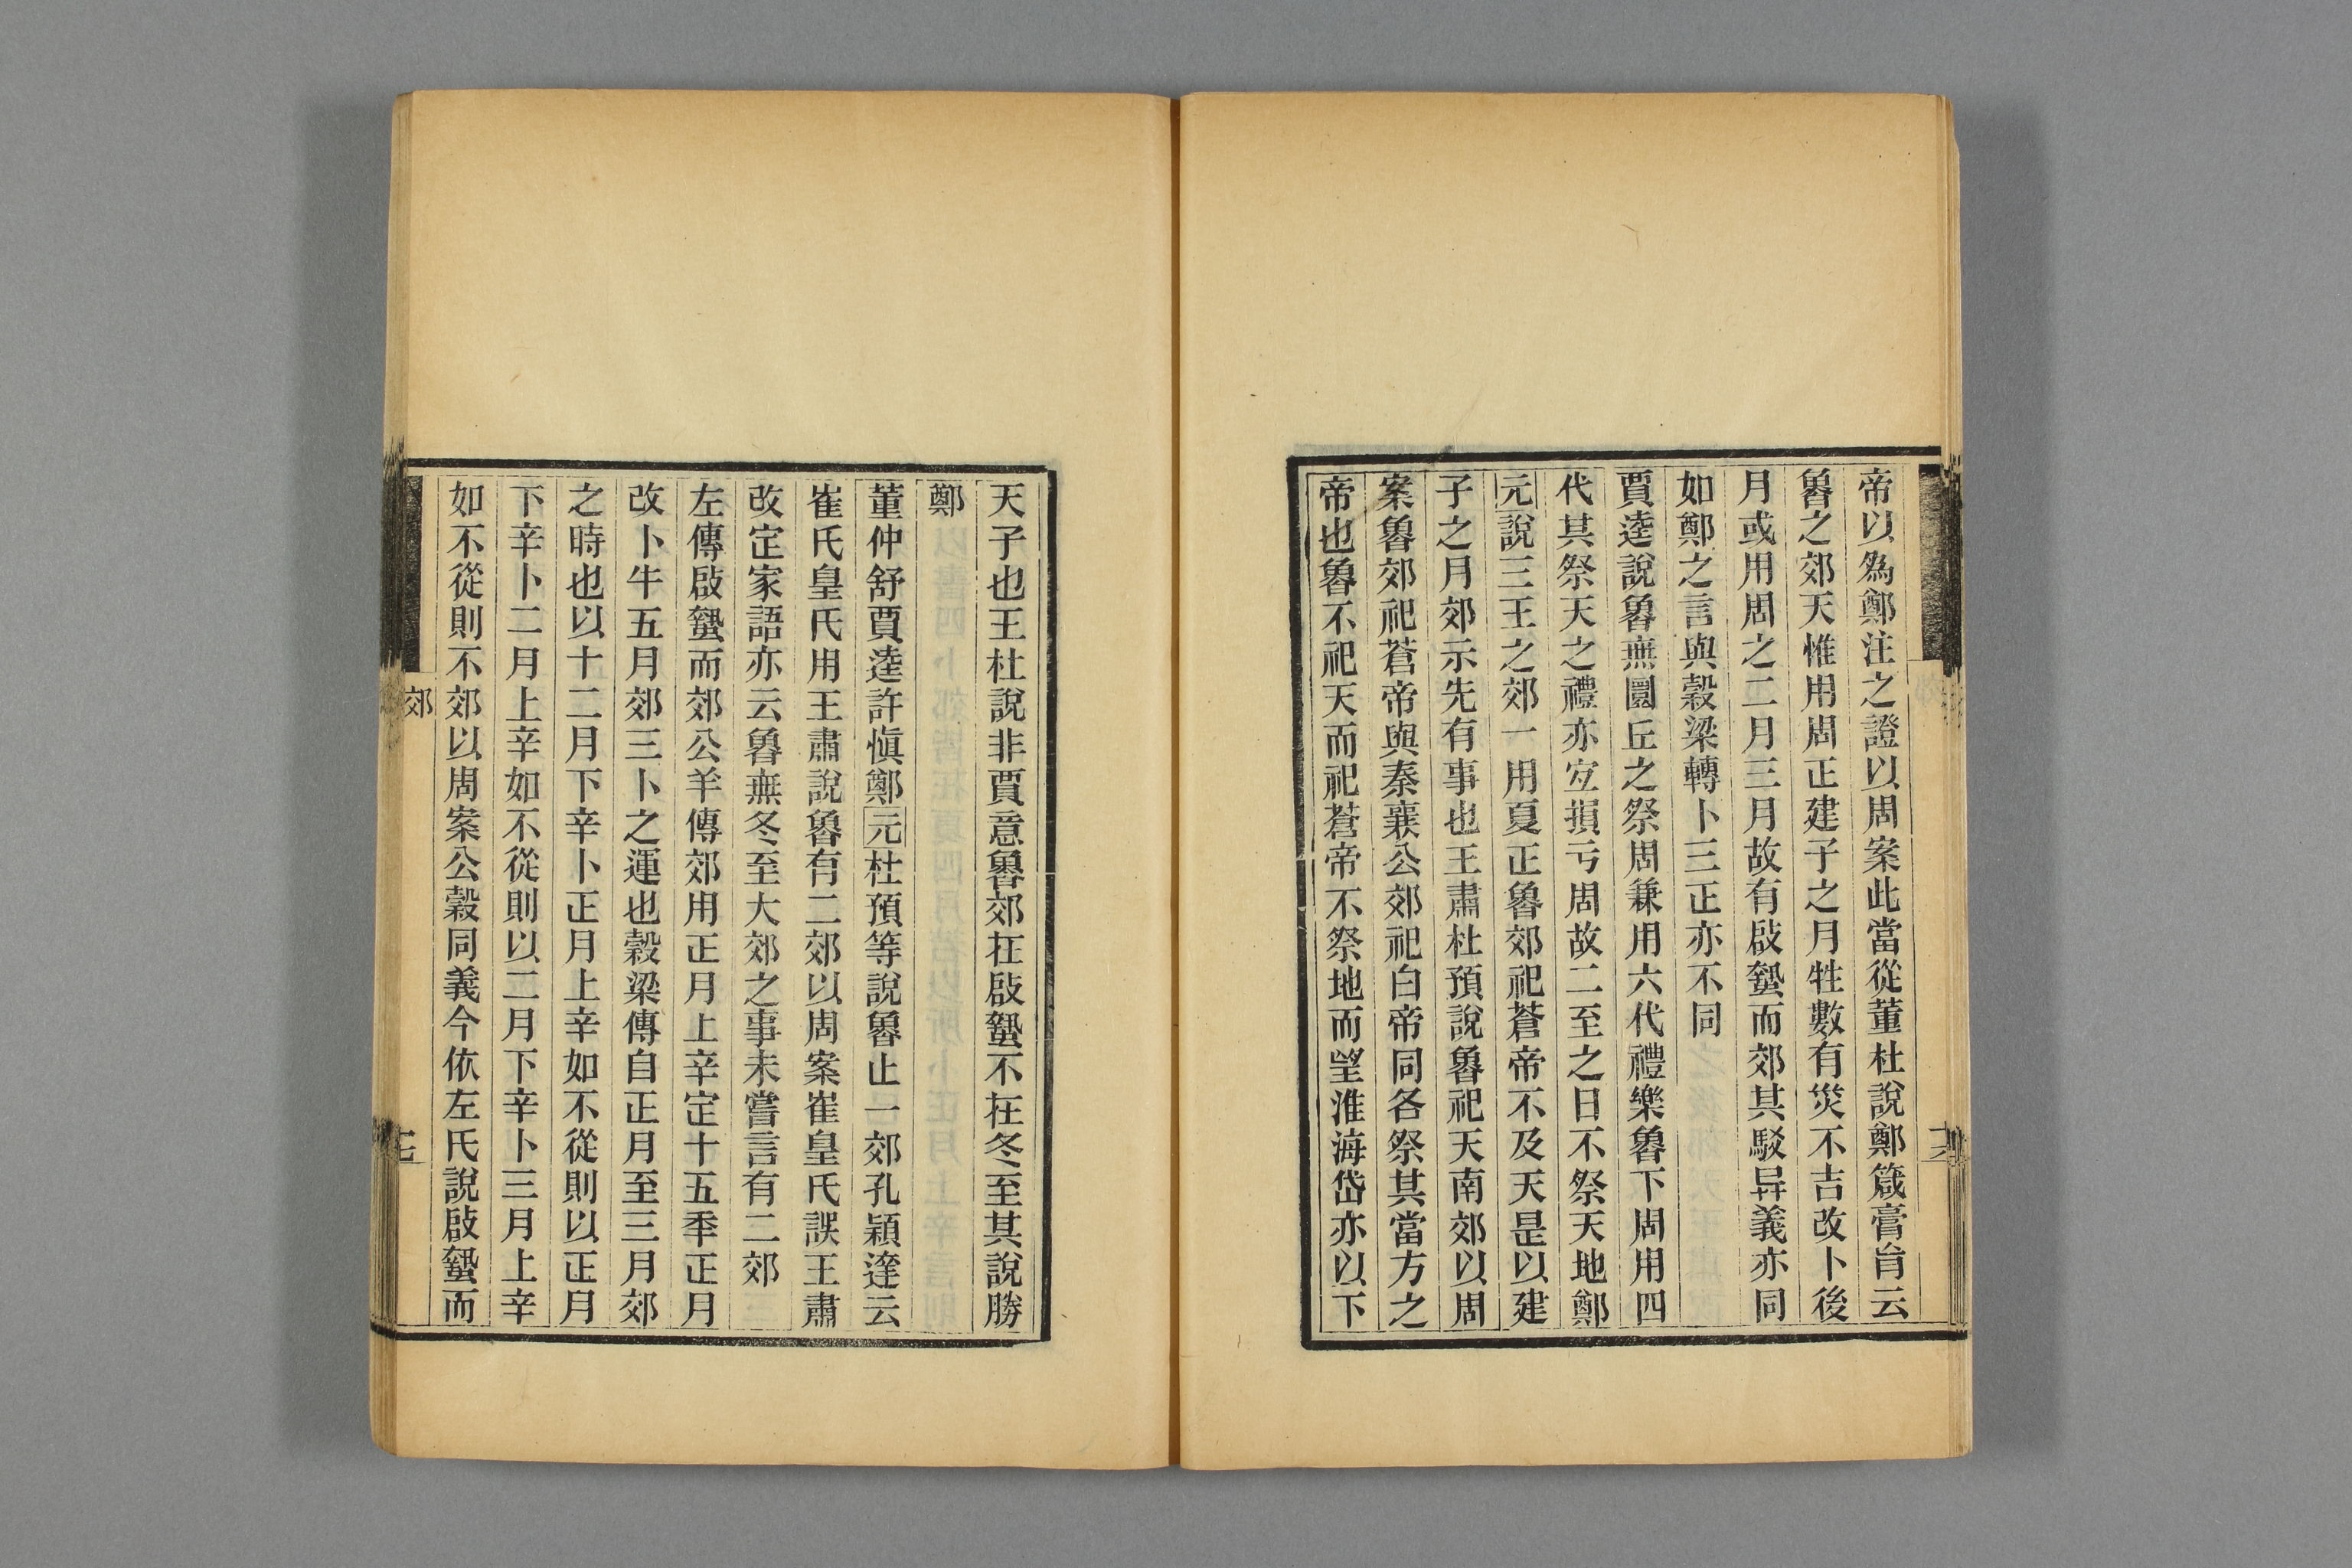 帝以爲鄭注之證以周案此當從董杜說鄭箴膏肓云
魯之郊天惟用周正建子之月牲數有災不吉改卜後
月或用周之二月三月故有啟蟄而郊其駁异義亦同
如鄭之言與穀梁轉卜三正亦不同
賈逵說魯無圜丘之祭周兼用六代禮樂魯下周用四
代其祭天之禮亦宜損亏周故二至之日不祭天地鄭
元說三王之郊一用夏正魯郊祀蒼帝不及天是以建
子之月郊示先有事也王肅杜預說魯祀天南郊以周
案魯郊祀蒼帝與秦襄公郊祀白帝同各祭其當方之
帝也魯不祀天而祀蒼帝不祭地而望淮海岱亦以下
天子也王杜說非賈意魯郊在啟蟄不在冬至其說勝
鄭
董仲舒賈逵許愼鄭元杜預等說魯止一郊孔穎達云
崔氏皇氏用王肅說魯有二郊以周案崔皇氏誤王肅
改定家語亦云魯無冬至大郊之事未嘗言有二郊
左傳啟蟄而郊公羊傳郊用正月上辛定十五秊正月
改卜牛五月郊三卜之運也穀梁傳自正月至三月郊
之時也以十二月下辛卜正月上辛如不從則以正月
下辛卜二月上辛如不從則以二月下辛卜三月上辛
如不從則不郊以周案公穀同義今依左氏說啟蟄而
郊